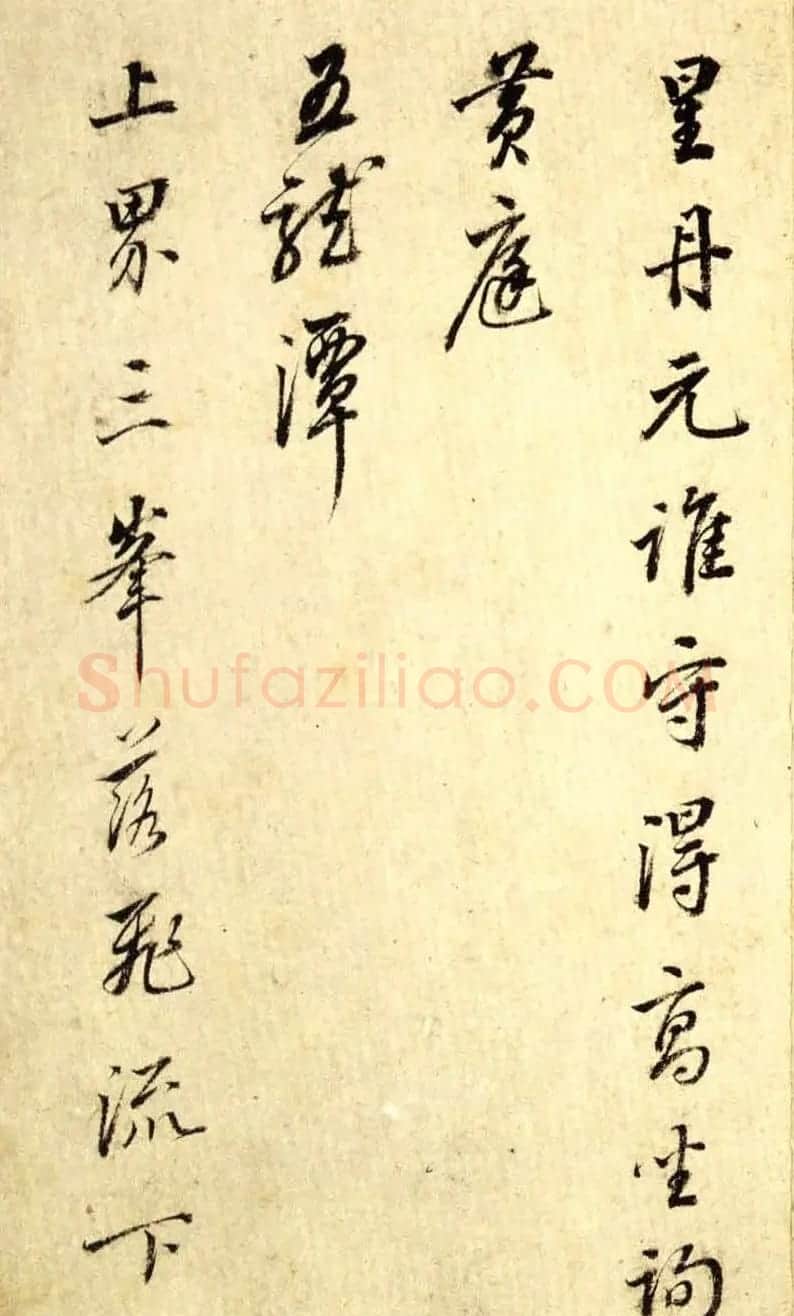 星丹元谁守得高坐询
黄庭
五龍潭
上界三峯落飛流下
Shufaziliao.COM